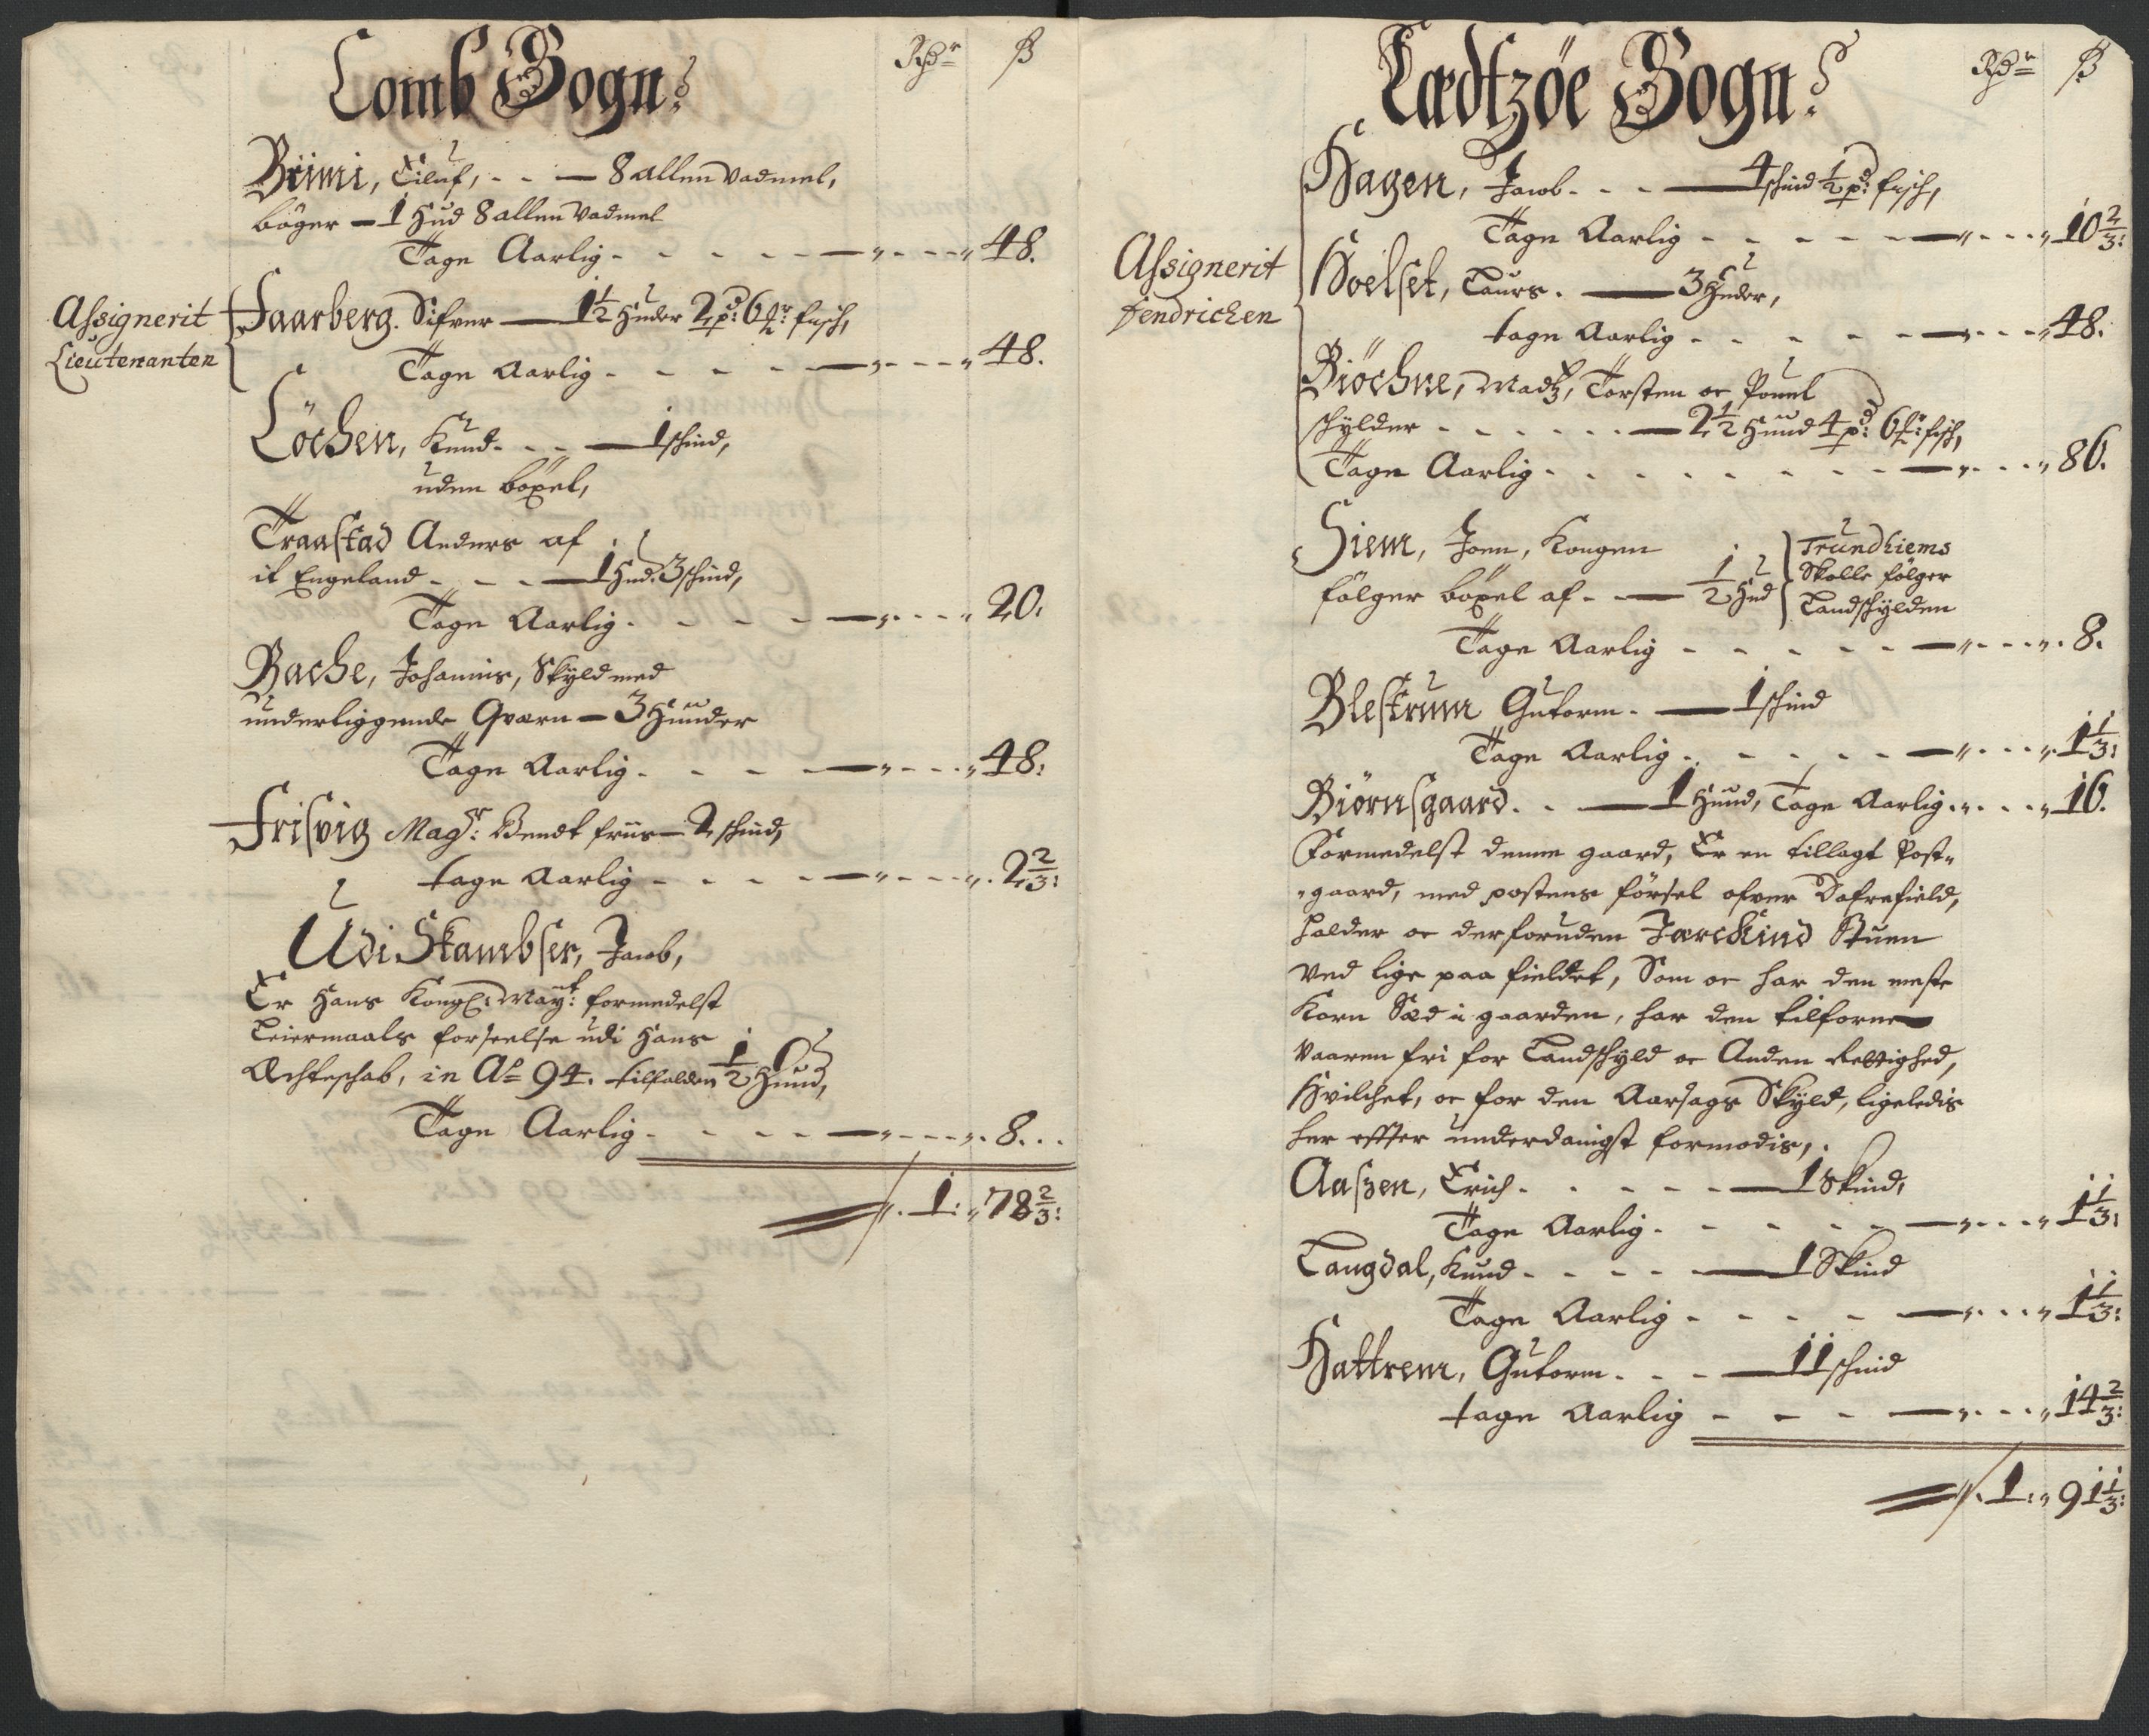 Lomb Sogn:
Rdr ß
Brimi, Eiluf, - - — 8 allen vadmel,
böger — 1 Hud 8 allen vadmel
Tage Aarlig - - - - - — „ - - - „ 48.
Assignerit
Lieutenanten
Faarberg. Sifver — 1½ Huder 2 pd: 6 fisch,
Tage Aarlig - - - - - — „ - - - „ 48.
Löchen, Knud - - - — 1 schind,
uden böxel,
Traastad Anders af
it Engeland - - - — 1 Hud. 3 schind,
Tage Aarlig - - - - — „ - - - „ 20.
Bache, Johannis, Skyld med
underliggende Qværn — 3 Huuder
Tage Aarlig - - - - — „ - - - „ 48:
Frisvig Magr: Bendt friis — 2 schind,
tage Aarlig - - - - — „ - - - „ 2⅔:
Udi Skambser, Jacob,
Er Hans Kongl: Mayt: formedelst
Leiermaals forseelse udi Hans
Ächteschab, in Ao 94. tilfalden ½ Huud,
Tage Aarlig - - - - — „ - - - „ 8. . .
„. 1: „ 78⅔:
Lædtzöe Sogn:
Rdr ß
Assignerit
Fendricken
Hagen, Jacob - - - — 4 schind ½ pd: fisch,
Tage Aarlig - - - - - — „ - - - „ 10⅔:
Hoelset, Laurs. — 3 Huder,
tage Aarlig - - - - - — „ - - - „ 48.
Biöchne, Madtz, Torsten oc Pouel
schylder - - - - - - — 2½ Huud 4 pd: 6 fisch,
Tage Aarlig - - - - - - - - — „ - - - „ 86.
Siem, Joen, Kongen
fölger böxel af - - — ½ Hud
Trundhiems
Skolle fölger
Landschylden
Tage Aarlig - - - - - — „ - - - „ 8.
Blestrum Gutorm - — 1 schind
Tage Aarlig - - - - - — „ - - - „ 1⅓:
Biörnsgaard. - — 1 Huud, Tage Aarlig - „ - - - „ 16.
Formedelst denne gaard, Er en tillagt Post„
„gaard, med postens försel ofver Dofrefield,
holder oc derforuden Jærckind Stuen
ved lige paa fieldet, Som oc har den meste
Korn Sæd i gaarden, har den tilforne
vaaren fri for Landschyld oc Anden Rettighed,
Hvilchet, oc for den Aarsags Skyld, ligeledis
her effter underdanigst formodis,
Aaszen, Erich - - - - - — 1 Skind,
Tage Aarlig - - - - - — „ - - - „ 1⅓:
Langdal, Knud - - - - — 1 Skind
Tage Aarlig - - - - — „ - - - „ 1⅓:
Hattrem, Gutorm - - - — 11 schind
tage Aarlig - - - — „ - - - „ 14⅔:
„. 1: „ 91⅓: